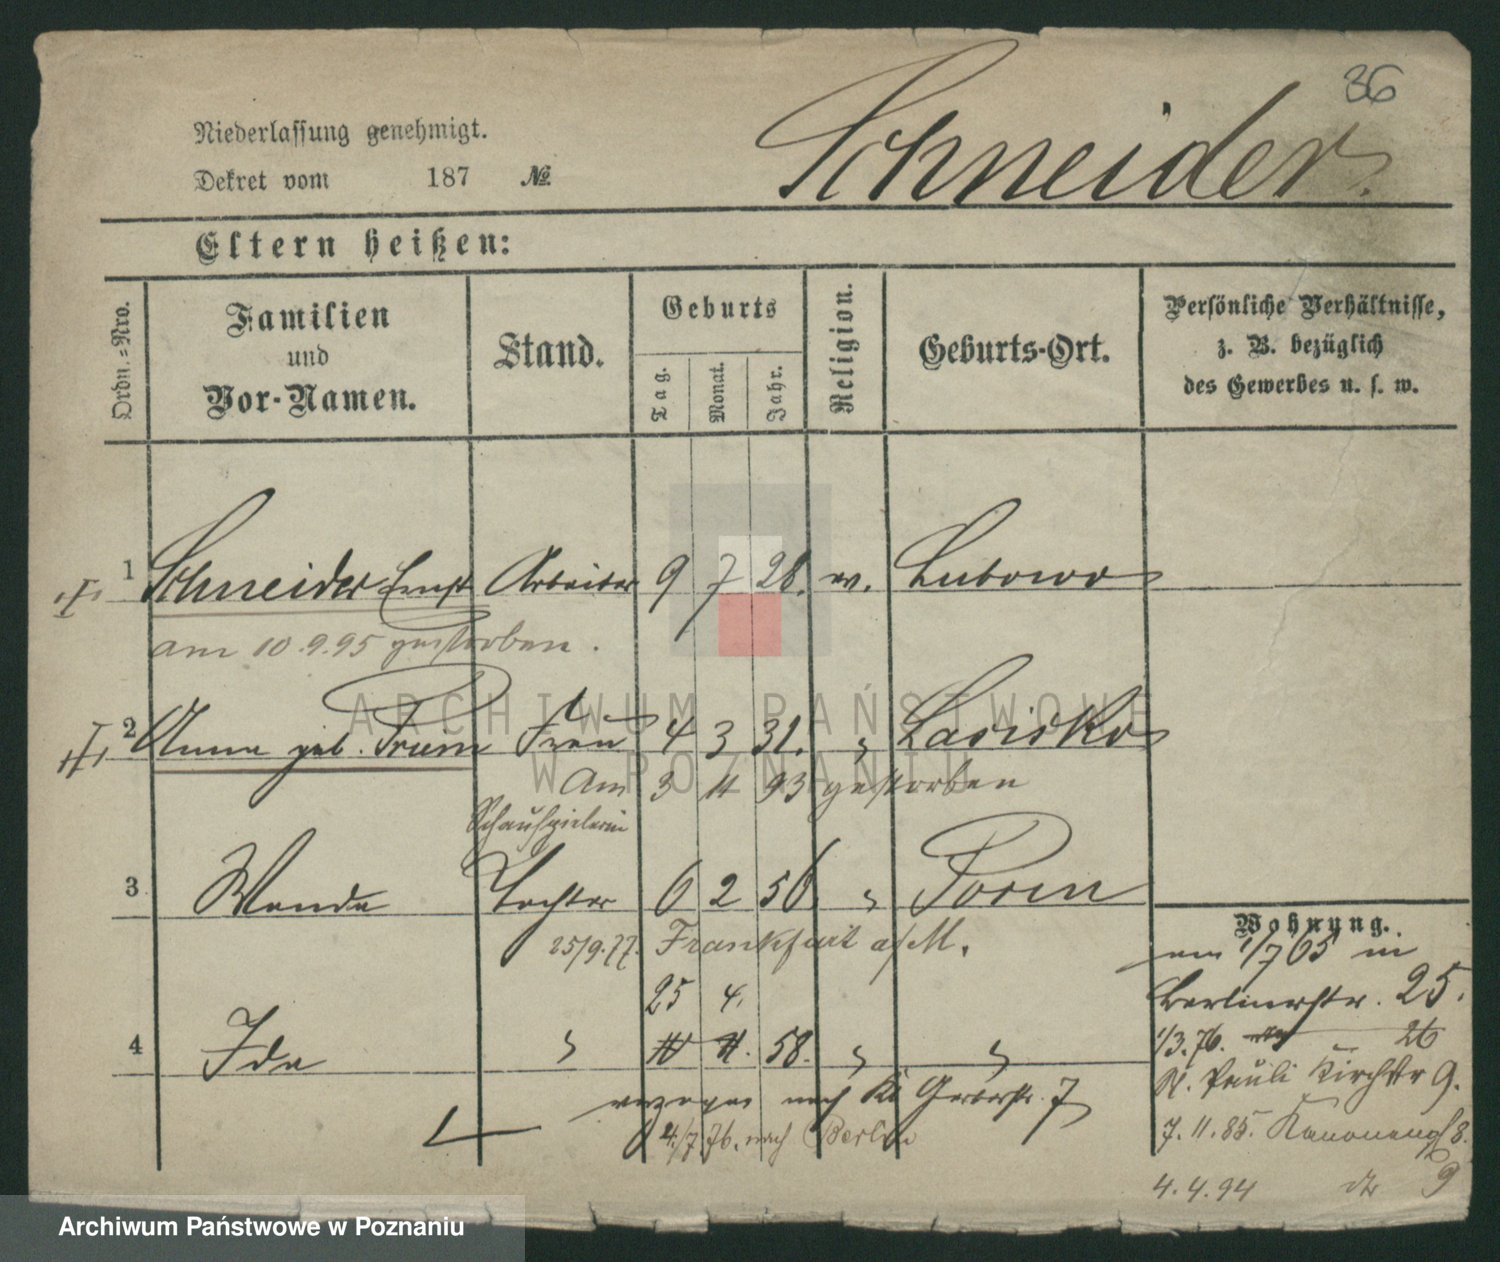 36
Niederlassung genehmigt.
Schneider.
Dekret vom 187 №
Eltern heißen:
Ordn.-Nro.
Familien und Vor-Namen.
Stand.
Geburts
Tag. Monat. Jahr.
Religion.
Geburts-Ort.
Persönliche Verhältnisse,
z. B. bezüglich
des Gewerbes u. s. w.
1 Schneider Ernst Arbeiter 9 7 28. ev. Lubowo
am 10.9.95 gestorben.
2 Anna geb. Frau 4 3 31. " Lasisko
Am 3 11 93 gestorben
Schauspielerin
3 Wanda Tochter 6 2 56. " Posen
25/9.77. Frankfurt a/M.
25 4.
4 Ida " 58. " "
verzogen nach Kl Gerberstr. 7
4./7.76. nach Berlin
Wohnung.
am 1/7 65 in
Berlinerstr. 25.
1/3.76. 26
St. Pauli Kirchstr 9.
7.11.85. Kanonengß 8.
4.4.94 9
ARCHIWUM PAŃSTWOWE
W POZNANIU
Archiwum Państwowe w Poznaniu